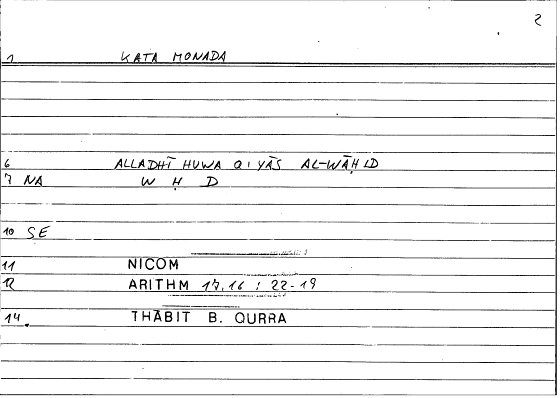 2
1 KATA MONADA
6 ALLADHĪ HUWA QIYĀS AL-WĀḤID
7 NA W Ḥ D
10 SE
11 NICOM
12 ARITHM 17.16 : 22-19
14. THĀBIT B. QURRA